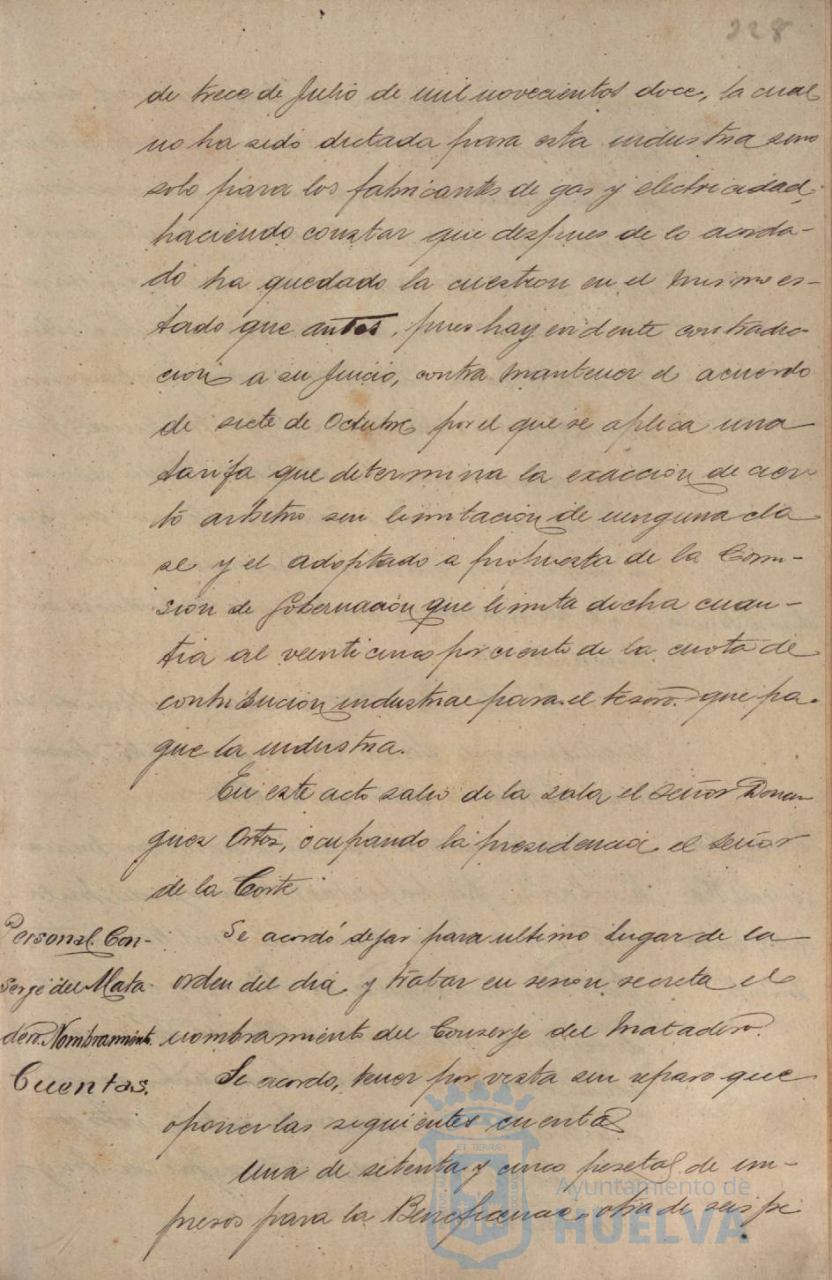 228
de trece de Julio de mil novecientos doce, la cual
no ha sido dictada para esta industria sino
solo para los fabricantes de gas y electricidad,
haciendo constar que despues de lo acorda-
do ha quedado la cuestion en el mismo es-
tado que antes, pues hay evidente contradic-
cion a su Juicio, contra mantener el acuerdo
de siete de Octubre por el que se aplica una
tarifa que determina la exaccion de cier-
to arbitrio sin limitacion de ninguna cla
se y el adoptado a propuesta de la Comi-
sion de Gobernacion que limita dicha cuan-
tia al veinticinco por ciento de la cuota de
contribucion industrial para el tesoro que pa-
gue la industria.
En este acto salio de la sala el Señor Domin
guez Ortos, ocupando la presidencia el Señor
de la Corte
Personal. Con- Se acordó dejar para ultimo lugar de la
serje del Mata- orden del dia y tratar en sesion secreta el
dero. Nombramiento. nombramiento del Conserje del Matadero.
Cuentas. Se acordo, tener por vista sin reparo que
oponer las siguientes cuentas
Una de setenta y cinco pesetas de im-
presos para la Beneficencia, otra de seis pe
Ayuntamiento de
HUELVA